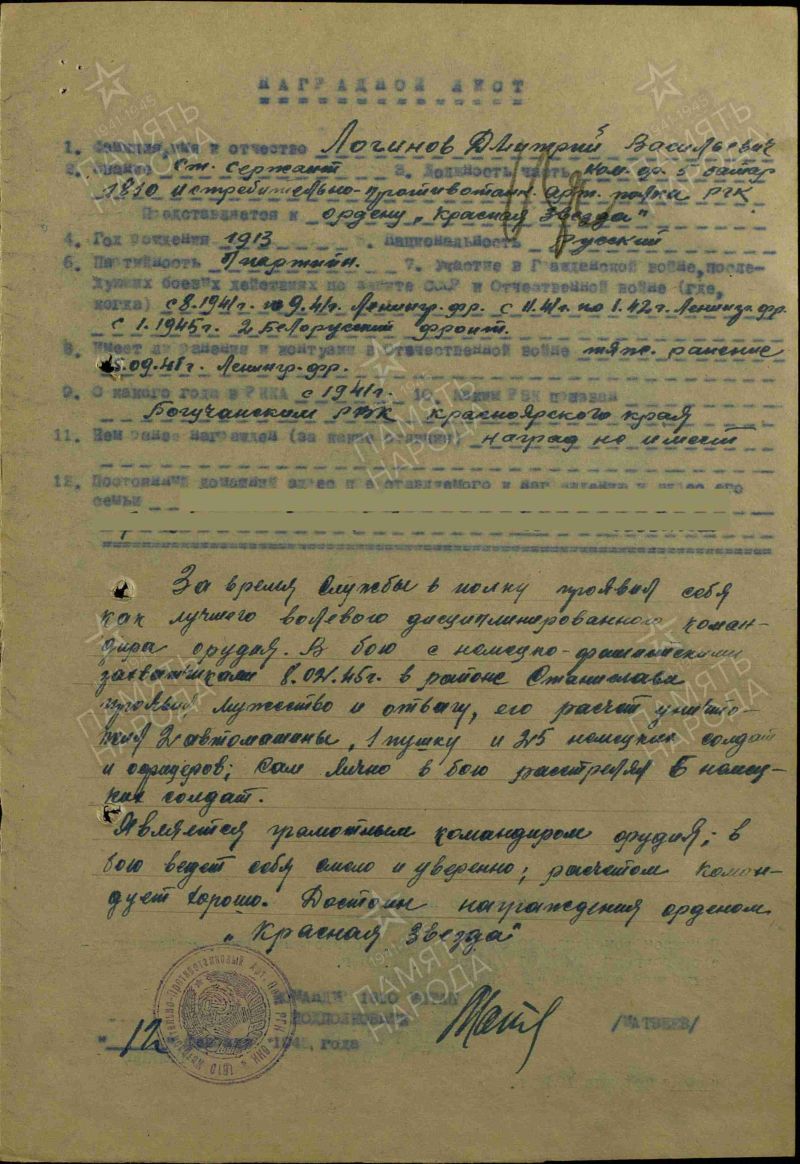 НАГРАДНОЙ ЛИСТ
1. Фамилия, имя и отчество Логинов Дмитрий Васильевич
2. Звание Ст. сержант 3. Должность часть Ком. ор. 5 батар
1810 истребительно-противотанк. арт. полка РГК
Представляется к ордену „Красная Звезда"
4. Год рождения 1913 5. Национальность русский
6. Партийность б/партийн. 7. Участие в Гражданской войне, после-
дующих боевых действиях по защите СССР и Отечественной войне (где,
когда) с 8.1941г. по 9.41г. Ленингр. фр. с 11.41г. по 1.42г. Ленингр. фр.
с 1.1945г. 2 Белорусский фронт.
8. Имеет ли ранения и контузии в Отечественной войне тяж. ранение
15.09.41г. Ленингр. фр.
9. С какого года в РККА с 1941г. 10. Каким РВК призван
Богучанским РВК Красноярского края
11. Чем ранее награжден (за какие отличия) наград не имеет
12. Постоянный домашний адрес представляемого к награждению и адрес его
семьи
За время службы в полку проявил себя
как лучшего волевого дисциплинированного коман-
дира орудия. В бою с немецко-фашистскими
захватчиками 8.02.45г. в районе Станислави
проявил мужество и отвагу, его расчет уничто-
жил 2 автомашины, 1 пушку и 25 немецких солдат
и офицеров; Сам лично в бою расстрелял 5 немец-
ких солдат.
Является грамотным командиром орудия; в
бою ведет себя смело и уверенно; расчетом коман-
дует хорошо. Достоин награждения орденом
„Красная Звезда"
КОМАНДИР 1810
ПОДПОЛКОВНИК /МАТВЕЕВ/
"12" февраля 1945 года
1941-1945
ПАМЯТЬ
НАРОДА